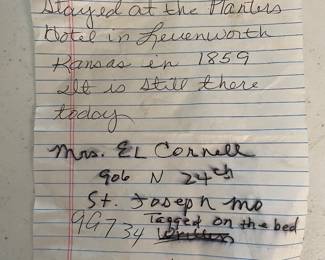 Stayed at the Planters
Hotel in Levenworth
Kansas in 1859
It is still there
today
Mrs. EL Cornell
906 N 24th
St. Joseph Mo
Tagged on the bed
99734